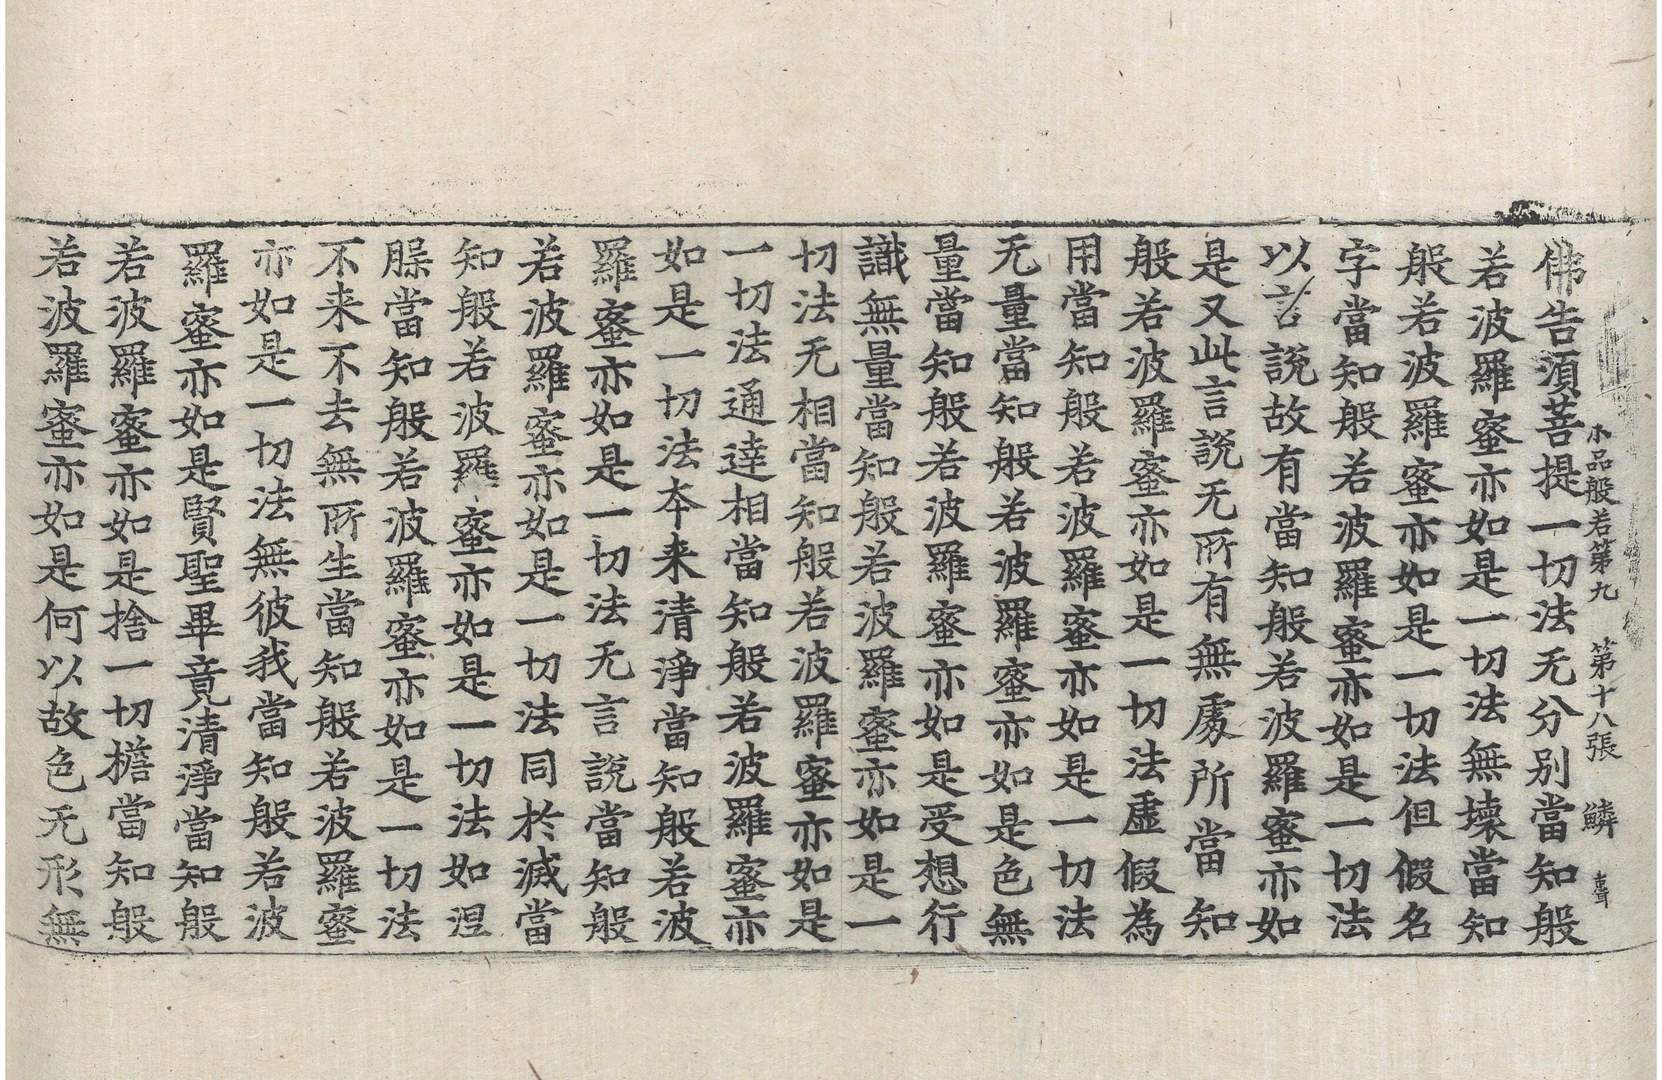 小品般若第九　第十八張　鱗
佛告湏菩提一切法无分别當知般
若波羅蜜亦如是一切法無壞當知
般若波羅蜜亦如是一切法但假名
字當知般若波羅蜜亦如是一切法
以言說故有當知般若波羅蜜亦如
是又此言說无所有無處所當知
般若波羅蜜亦如是一切法虛假為
用當知般若波羅蜜亦如是一切法
无量當知般若波羅蜜亦如是色無
量當知般若波羅蜜亦如是受想行
識無量當知般若波羅蜜亦如是一
切法无相當知般若波羅蜜亦如是
一切法通達相當知般若波羅蜜亦
如是一切法本来清淨當知般若波
羅蜜亦如是一切法无言說當知般
若波羅蜜亦如是一切法同於滅當
知般若波羅蜜亦如是一切法如涅
槃當知般若波羅蜜亦如是一切法
不来不去無所生當知般若波羅蜜
亦如是一切法無彼我當知般若波
羅蜜亦如是賢聖畢竟清淨當知般
若波羅蜜亦如是捨一切檐當知般
若波羅蜜亦如是何以故色无形無